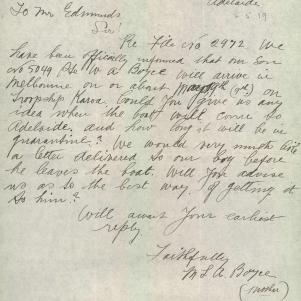 Adelaide
5.5.19
To Mr Edmunds
Sir
Re File No 2972. We
have been officially informed that our Son
No 5049 Pte W. A Boyce will arrive in
Melbourne on or about (9th) on
Troopship Karoa. Could you give us any
idea when the boat will come to
Adelaide, and how long it will be in
quarantine? We would very much like
a letter delivered to our boy before
he leaves the boat. Will you advise
us as to the best way of getting it
to him?
Will await Your earliest
reply.
Faithfully
M L A. Boyce
(Mother)